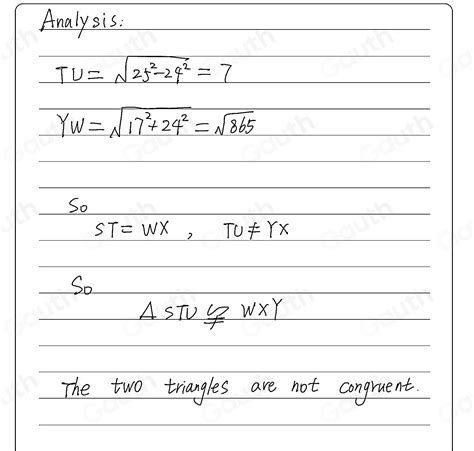 Analysis:
TU = √25²-24² = 7
YW = √17²+24² = √865
So
ST = WX , TU ≠ YX
So
△STU ≇ WXY
The two triangles are not congruent.